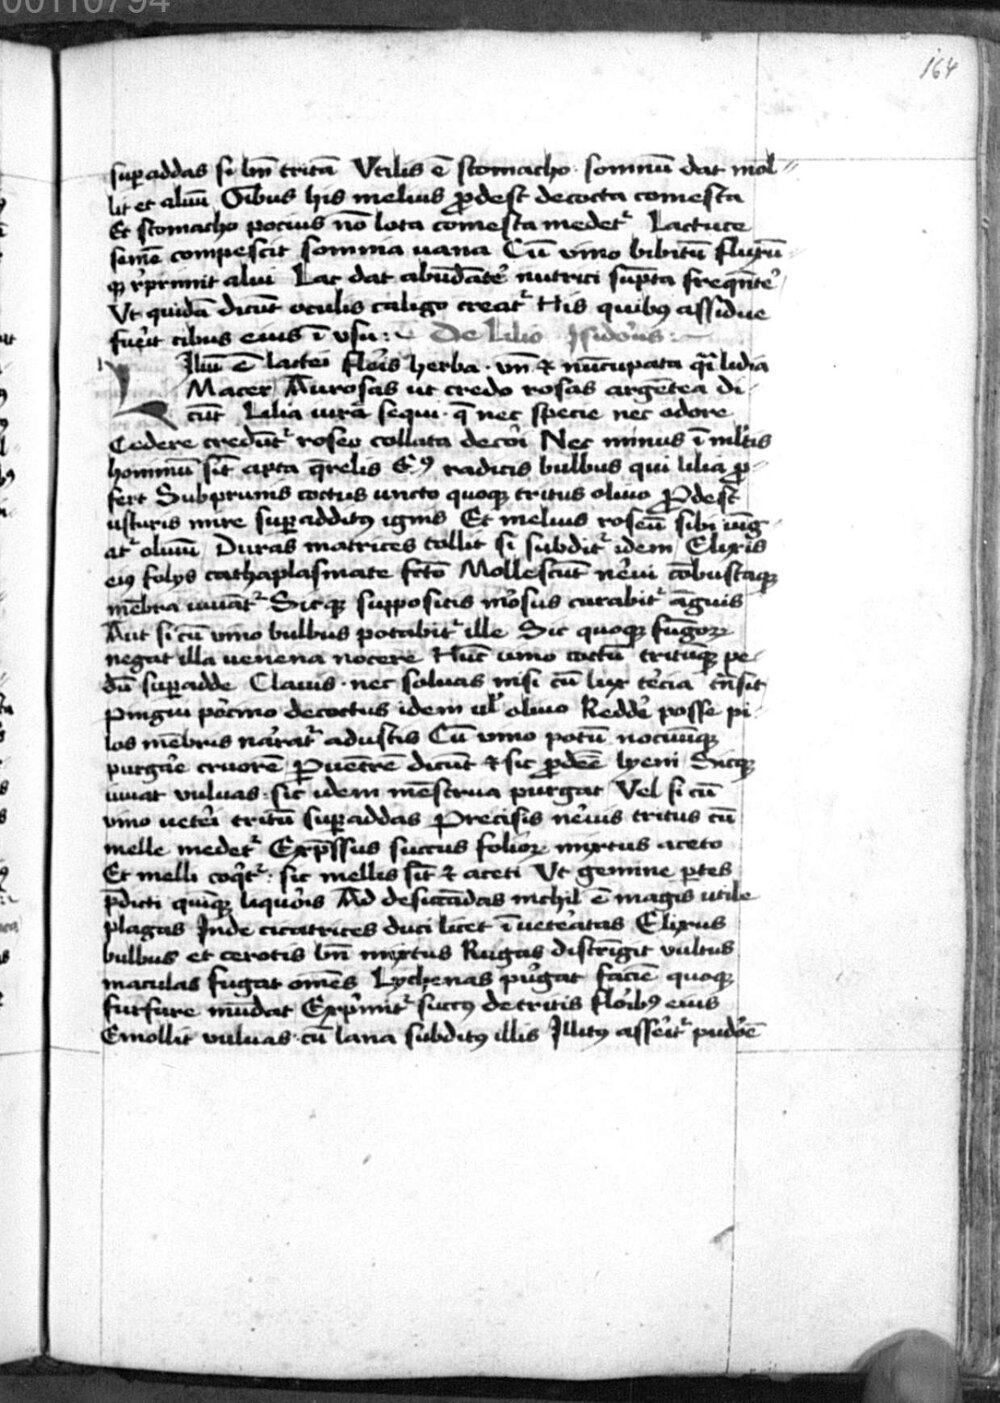 00110794
164
suꝑaddas si bn̄ tritā Vtilis ē stomacho · somnū dat mol
lit et aluū Oībus his melius ꝓdest decocta comesta
Et stomacho pocius nō lota comesta medet᷑ Lactuce
semē compescit somnia uana Cū vino bibitū fluxū
qꝫ rͥprimit alui Lac dat abūdāt᷑ nutrici sūpta freqn̄t᷑
Vt quidā dicūt oculis caligo creat᷑ His quibꝰ assidue
fūit cibus eius ī vsu :~ De Lilio Isidorus :~
Liliū ē lactei floris herba · vn̄ ⁊ nūcupata q̄si lidia
Macer Aurosas ut credo rosas argētea di
cūt Lilia iurā sequi · q̄ nec specie nec odore
Cedere credūt᷑ roseo collata decori Nec minus ī ml̄tis
hominū sīt apta q̄relis Eiꝰ radicis bulbus qui lilia ꝓ
fert Subprunis coctus uncto quoqꝫ tritus oliuo Prodest
usturis mire suꝑadditꝰ ignis Et melius roseū sibi iūg
at᷑ oliuū Duras matrices tollit si subdit᷑ idem Elixis
eiꝰ folys cathaplasmate fcō Mollescūt nerui cōbustaqꝫ
mēbra iuuāt᷑ Sicqꝫ suppositis morsus curabit᷑ āguis
Aut si cū vino bulbus potabit᷑ ille Sic quoqꝫ fūgoꝝ
negat illa uenena nocere Hūc vino coctū tritūqꝫ pe
dū suꝑadde Clauis · nec soluas nisi cū lux tercia trāsit
Pingui porcino decoctus idem ul̄ oliuo Redder posse pi
los mēbris narrat᷑ adustis Cū vino potū nocuūqꝫ
purgare cruorē Per uētrē dicūt ⁊ sic ꝓdeē lyeni Sicqꝫ
iuuat vuluas · sic idem mēstrua purgat Vel si cū
vino ueteri tritū suꝑaddas Precisis neruis tritus cū
melle medet᷑ Exp̄ssus succus folioꝝ mixtus aceto
Et melli coq̄t᷑ : sic mellis sīt ⁊ aceti Vt gemine ꝑtes
p̄dicti quīqꝫ liquoris Ad desiccādas nichil ē magis utile
plagas Inde cicatrices duci licet īueteratas Elixus
bulbus et cerotis bn̄ mixtus Rugas distrīgit vultus
maculas fugat omēs Lychenas purgat faciē quoqꝫ
furfure mūdat Exprimit᷑ succꝰ detritis floribꝰ eius
Emollit vuluas · cū lana subditꝰ illis Illitꝰ asserit᷑ pudorē